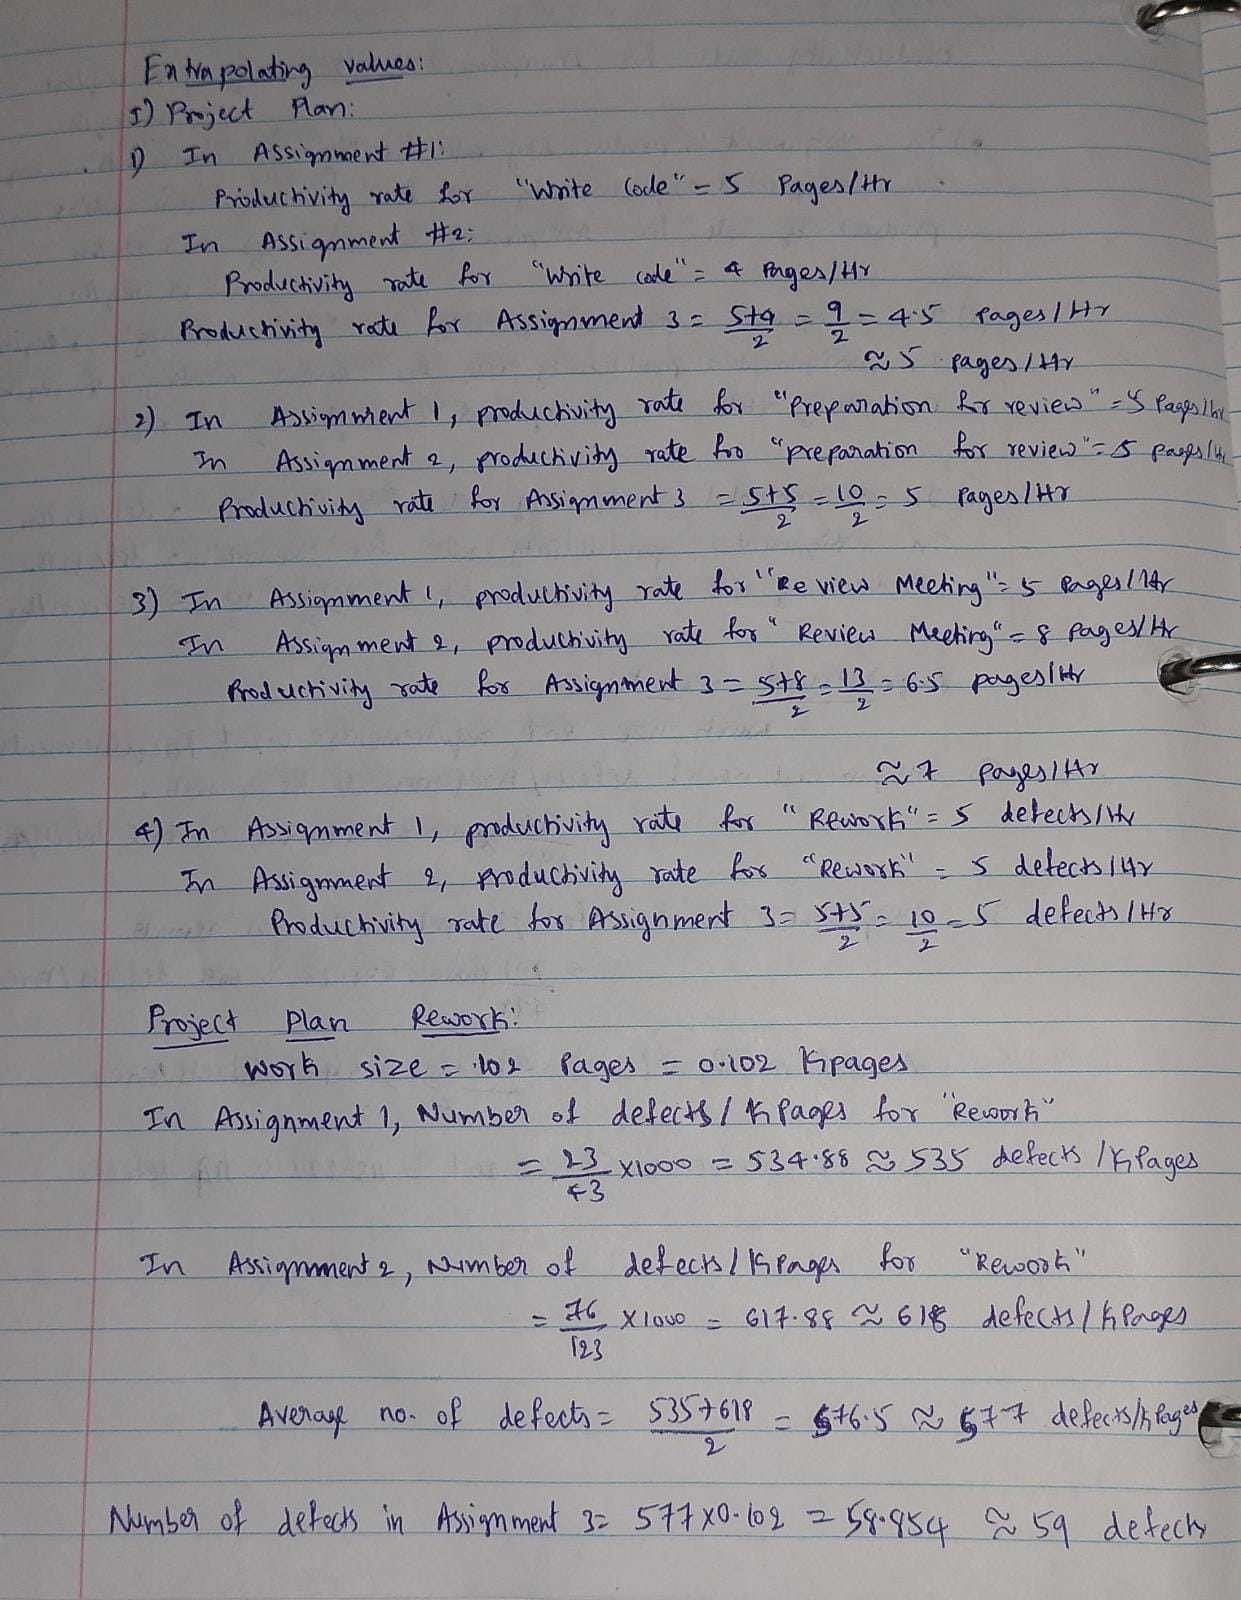 Extrapolating values:
I) Project Plan:
1) In Assignment #1:
Productivity rate for "Write Code" = 5 Pages/Hr
In Assignment #2:
Productivity rate for "Write code" = 4 Pages/Hr
Productivity rate for Assignment 3 = 5+4/2 = 9/2 = 4.5 Pages/Hr
≈ 5 pages/Hr
2) In Assignment 1, productivity rate for "Preparation for review" = 5 Pages/hr
In Assignment 2, productivity rate for "preparation for review" = 5 pages/Hr
Productivity rate for Assignment 3 = 5+5/2 = 10/2 = 5 Pages/Hr
3) In Assignment 1, productivity rate for "Review Meeting" = 5 Pages/Hr
In Assignment 2, productivity rate for "Review Meeting" = 8 Pages/Hr
Productivity rate for Assignment 3 = 5+8/2 = 13/2 = 6.5 pages/Hr
≈ 7 pages/Hr
4) In Assignment 1, productivity rate for "Rework" = 5 defects/Hr
In Assignment 2, productivity rate for "Rework" = 5 defects/Hr
Productivity rate for Assignment 3 = 5+5/2 = 10/2 = 5 defects/Hr
Project Plan Rework:
Work size = 102 Pages = 0.102 Kpages
In Assignment 1, Number of defects/KPages for "Rework"
= 23/43 X1000 = 534.88 ≈ 535 defects/KPages
In Assignment 2, Number of defects/KPages for "Rework"
= 76/123 X1000 = 617.88 ≈ 618 defects/KPages
Average no. of defects = 535+618/2 = 576.5 ≈ 577 defects/KPages
Number of defects in Assignment 3 = 577 X0.102 = 58.854 ≈ 59 defects